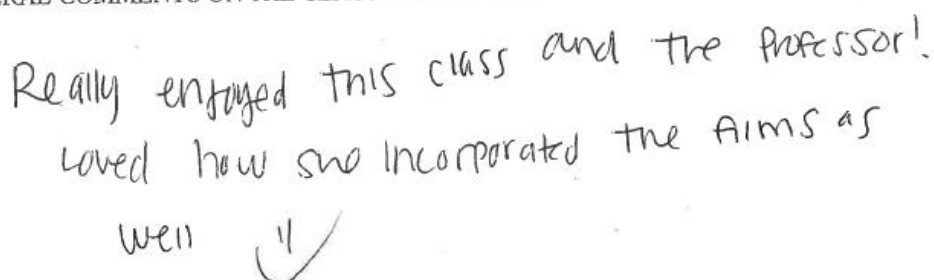 Really enjoyed this class and the Professor!
Loved how she incorporated the Aims as
well